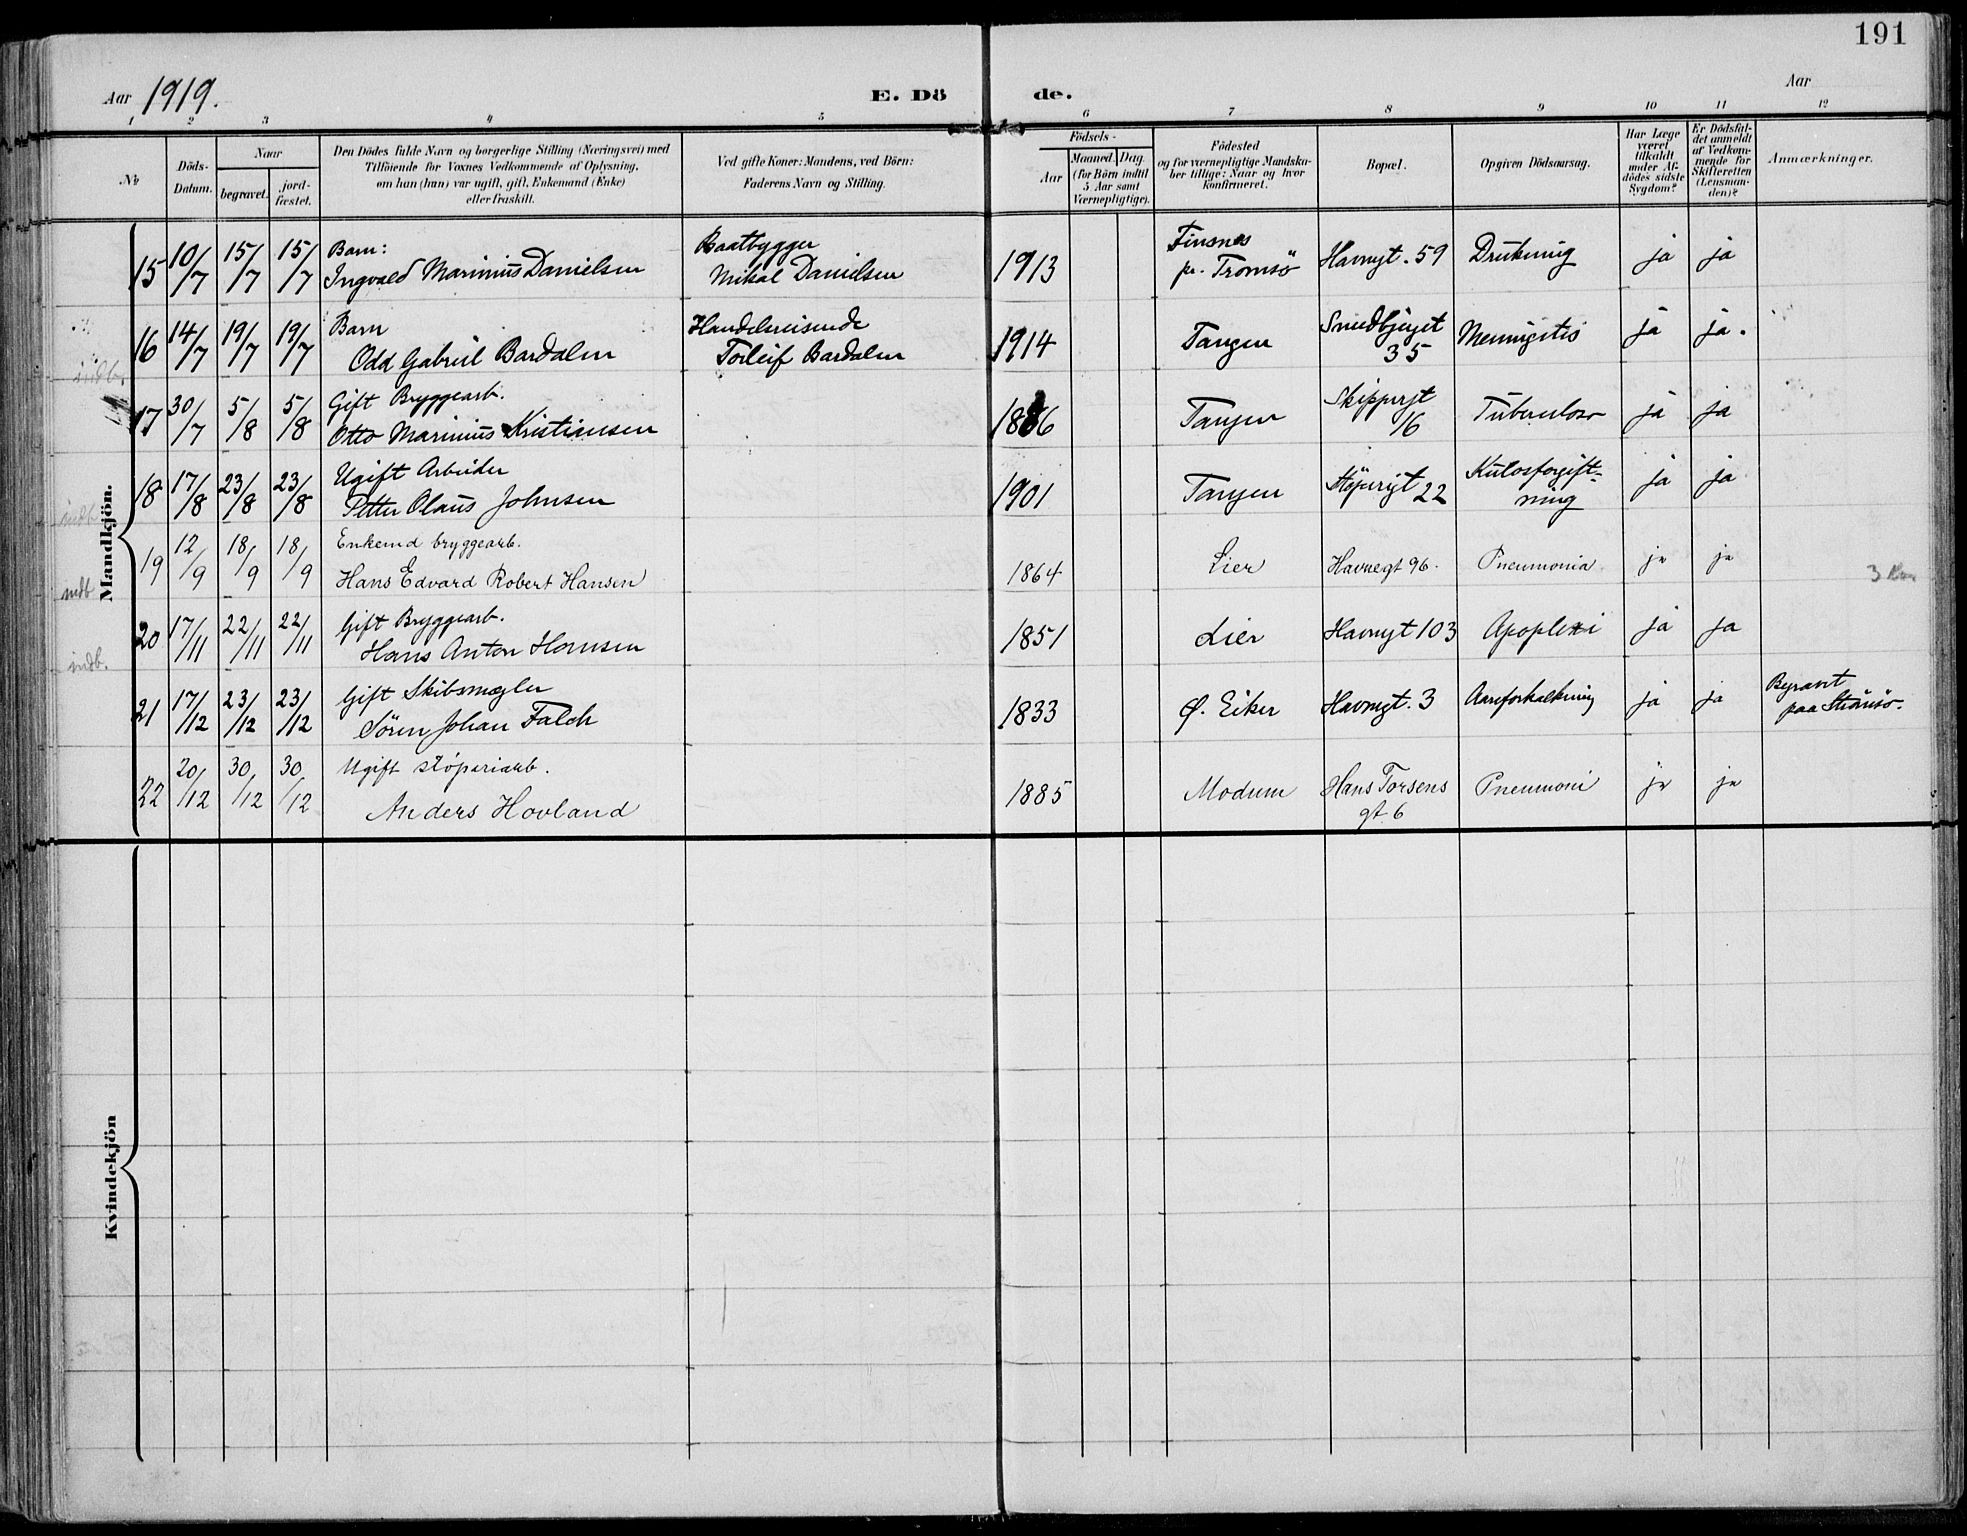 191
Aar 1919.
E. Dö de.
Aar
1 2 3 4 5 6 7 8 9 10 11 12
No
Döds-Datum.
Naar
begravet.
jord-fæstet.
Den Dödes fulde Navn og borgerlige Stilling (Næringsvei) med
Tilföiende for Voxnes Vedkommende af Oplysning,
om han (hun) var ugift, gift, Enkemand (Enke)
eller fraskilt.
Ved gifte Koner: Mandens, ved Börn:
Faderens Navn og Stilling.
Födsels-
Aar
Maaned. Dag.
(for Börn indtil
5 Aar samt
Værnepligtige).
Födested
og for værnepligtige Mandska-
ber tillige: Naar og hvor
konfirmeret.
Bopæl.
Opgiven Dödsaarsag.
Har Læge
været
tilkaldt
under Af-
dödes sidste
Sygdom?
Er Dödsfal-
det anmeldt
af Vedkom-
mende for
Skifteretten
(Lensman-
den)?
Anmærkninger.
Mandkjön.
15 10/7 15/7 15/7 Barn: Baatbygger Finsnes
Ingvald Marinius Danielsen Mikal Danielsen 1913 pr. Tromsö Havnegt. 59 Drukning ja ja
16 14/7 19/7 19/7 Barn Handelsreisende
Odd Gabriel Bardalen Torleif Bardalen 1914 Tangen 35 Meningitis ja ja.
indb.
17 30/7 5/8 5/8 Gift Bryggearb.
Otto Marinius Kristiansen Tangen Skippergt 16 Tuberculose ja ja
18 17/8 23/8 23/8 Ugift Arbeider
Petter Olaus Johnsen 1901 Tangen Stöperigt 22 Kulosforgift-
ning ja ja
indb
19 12/9 18/9 18/9 Enkemd bryggearb.
Hans Edvard Robert Hansen 1864 Lier Havnegt 96. Pneumonia ja ja
indb
20 17/11 22/11 22/11 Gift Bryggearb.
Hans Anton Hansen 1851 Lier Havnegt 103 Apoplexi ja ja
indb.
21 17/12 23/12 23/12 Gift Skibsmægler
Sören Johan Falch 1833 Ø. Eiker Havnegt. 3 Aareforkalkning ja ja Begravet
paa Strömsö.
22 20/12 30/12 30/12 Ugift stöperiarb.
Anders Hovland 1885 Modum Hans Torsens
gt. 6 Pneumoni ja ja
Kvindekjön